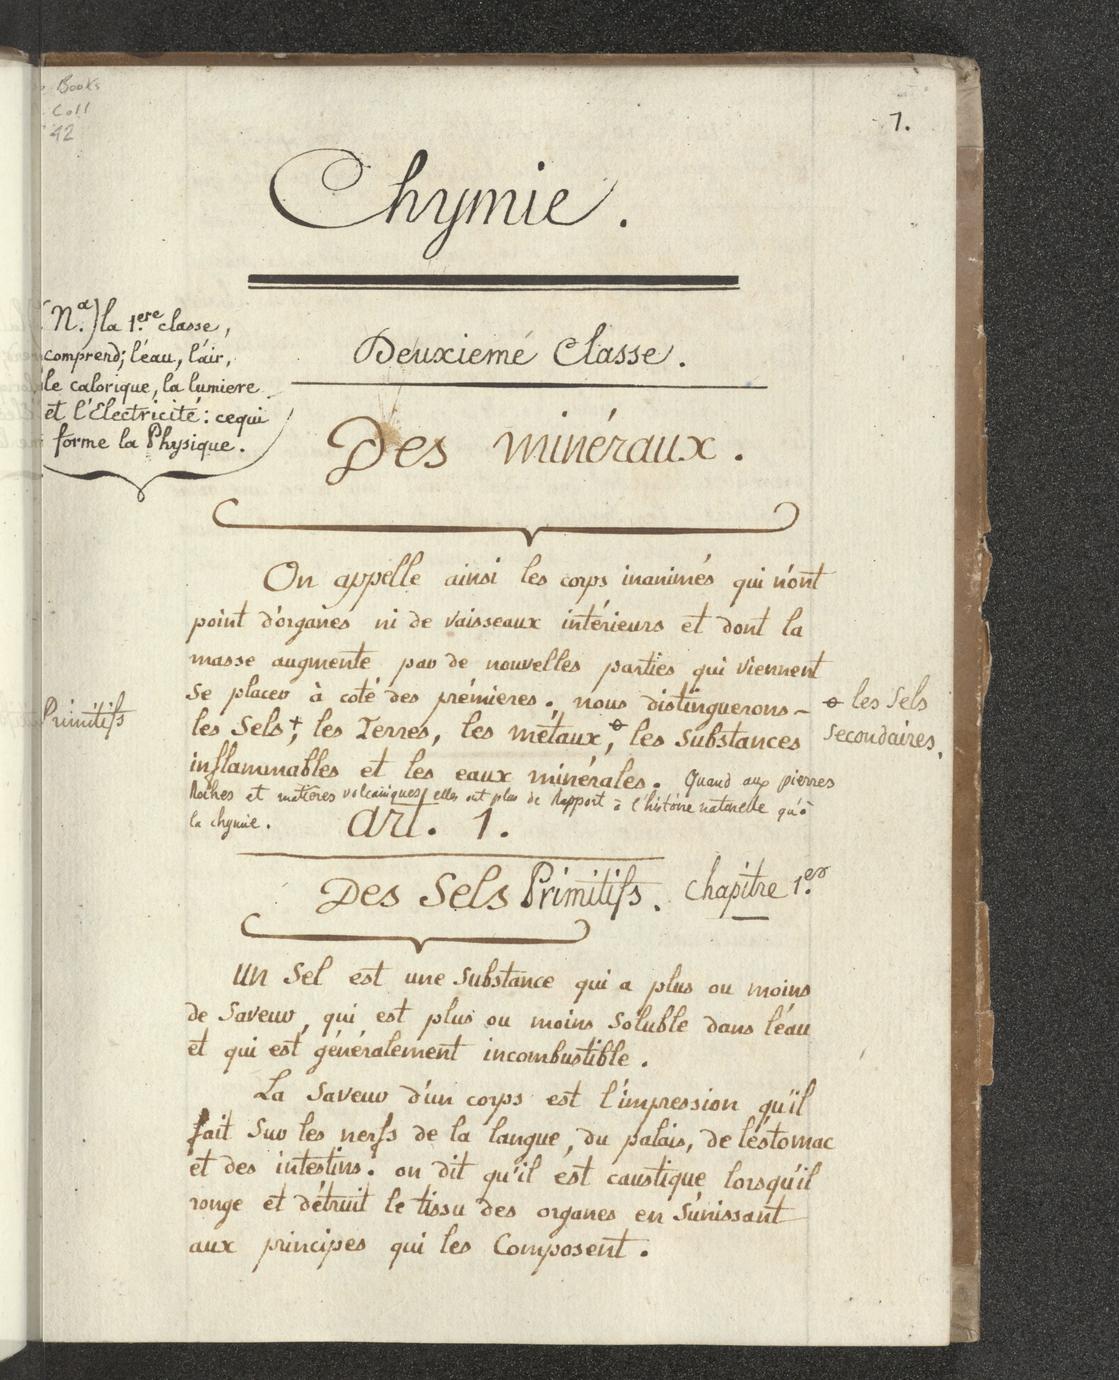 Books
Coll
42
7.
Chymie.
(Nª.) la 1.ere classe,
comprend; l'éau, l'air,
le calorique, la lumiere
et l'Electricité: cequi
forme la Physique.
Deuxiemé Classe.
Des minéraux.
On appelle ainsi les corps inanimés qui n'ont
point d'organes ni de vaisseaux intérieurs et dont la
masse augmente par de nouvelles parties qui viennent
se placer à coté des prémieres. nous distinguerons
les Sels +, les Terres, les métaux, ⊖ les Substances
inflammables et les eaux minérales. Quand aux pierres
Roches et matieres volcaniques, elles ont plus de Rapport à l'histoire naturelle qu'à
la chymie.
Primitifs
⊖ les Sels
secondaires.
art. 1.
Des Sels Primitifs. Chapitre 1.er
Un Sel est une Substance qui a plus ou moins
de Saveur, qui est plus ou moins Soluble dans l'éau
et qui est généralement incombustible.
La Saveur d'un corps est l'impression qu'il
fait Sur les nerfs de la langue, du palais, de l'éstomac
et des intestins. on dit qu'il est caustique lorsqu'il
ronge et détruit le tissu des organes en S'unissant
aux principes qui les Composent.